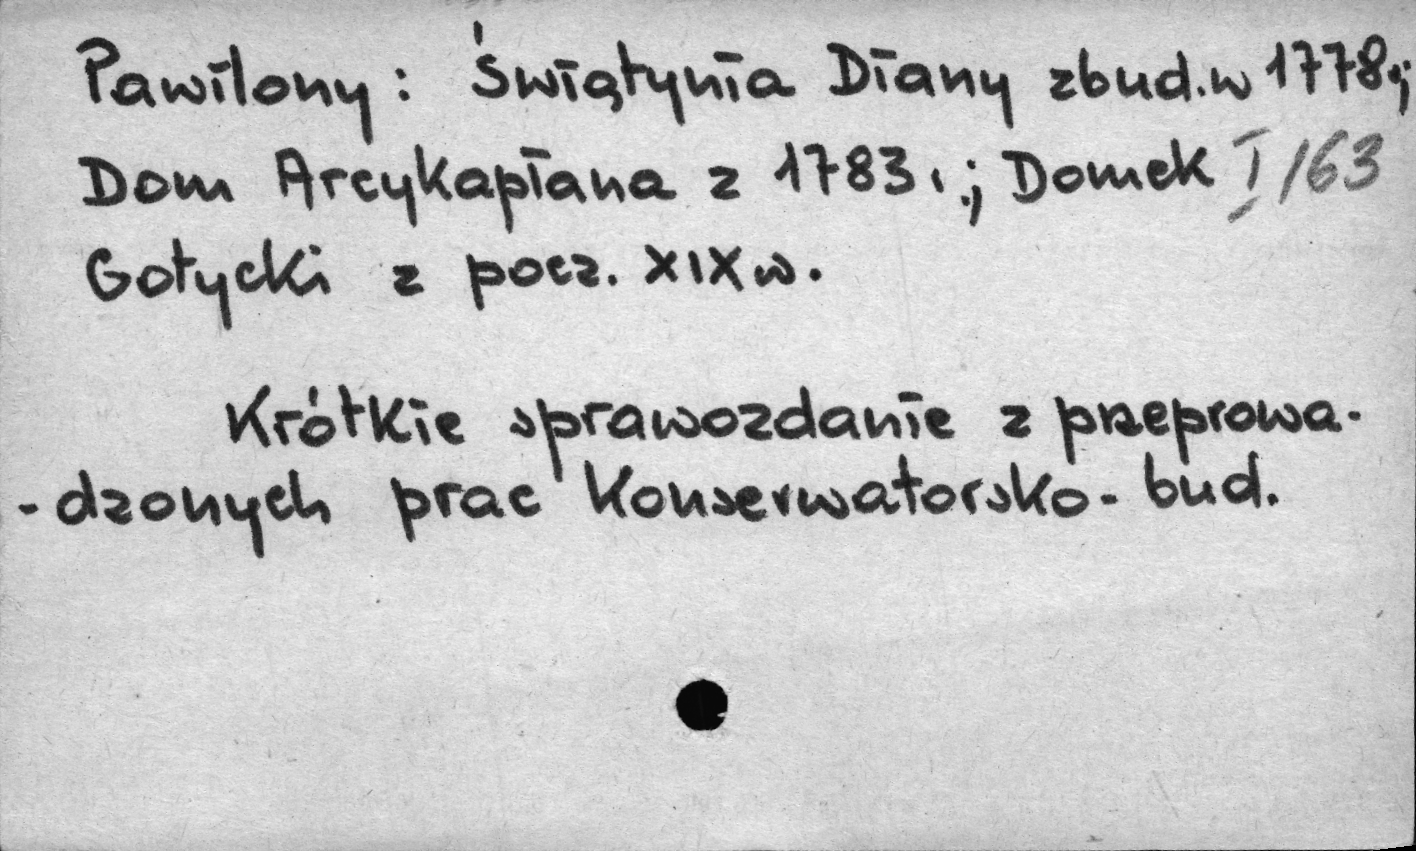 Pawilony: Świątynia Diany zbud. w 1778r;
Dom Arcykapłana z 1783 r.; Domek I/63
Gotycki z pocz. XIX w.
Krótkie sprawozdanie z przeprowa-
-dzonych prac Konserwatorsko-bud.